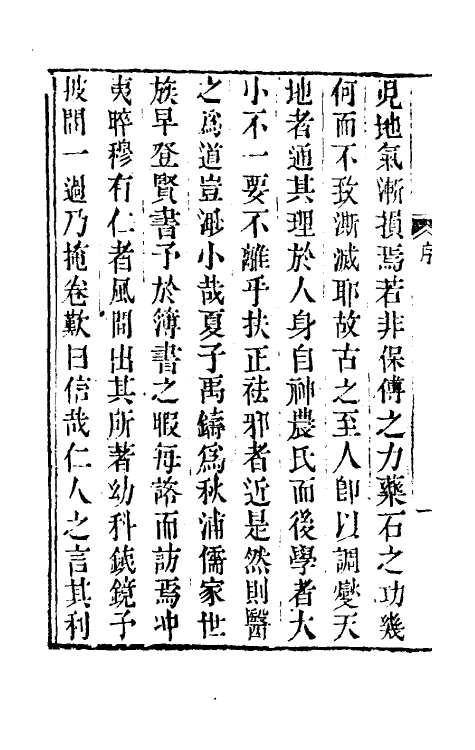 序
一
兒地氣漸損焉若非保傅之力藥石之功幾
何而不致澌滅耶故古之至人卽以調燮天
地者通其理於人身自神農氏而後學者大
小不一要不離乎扶正祛邪者近是然則醫
之爲道豈渺小哉夏子禹鑄爲秋浦儒家世
族早登賢書予於簿書之暇每諮而訪焉冲
夷睟穆有仁者風間出其所著幼科鐵鏡予
披閱一過乃掩卷歎曰信哉仁人之言其利